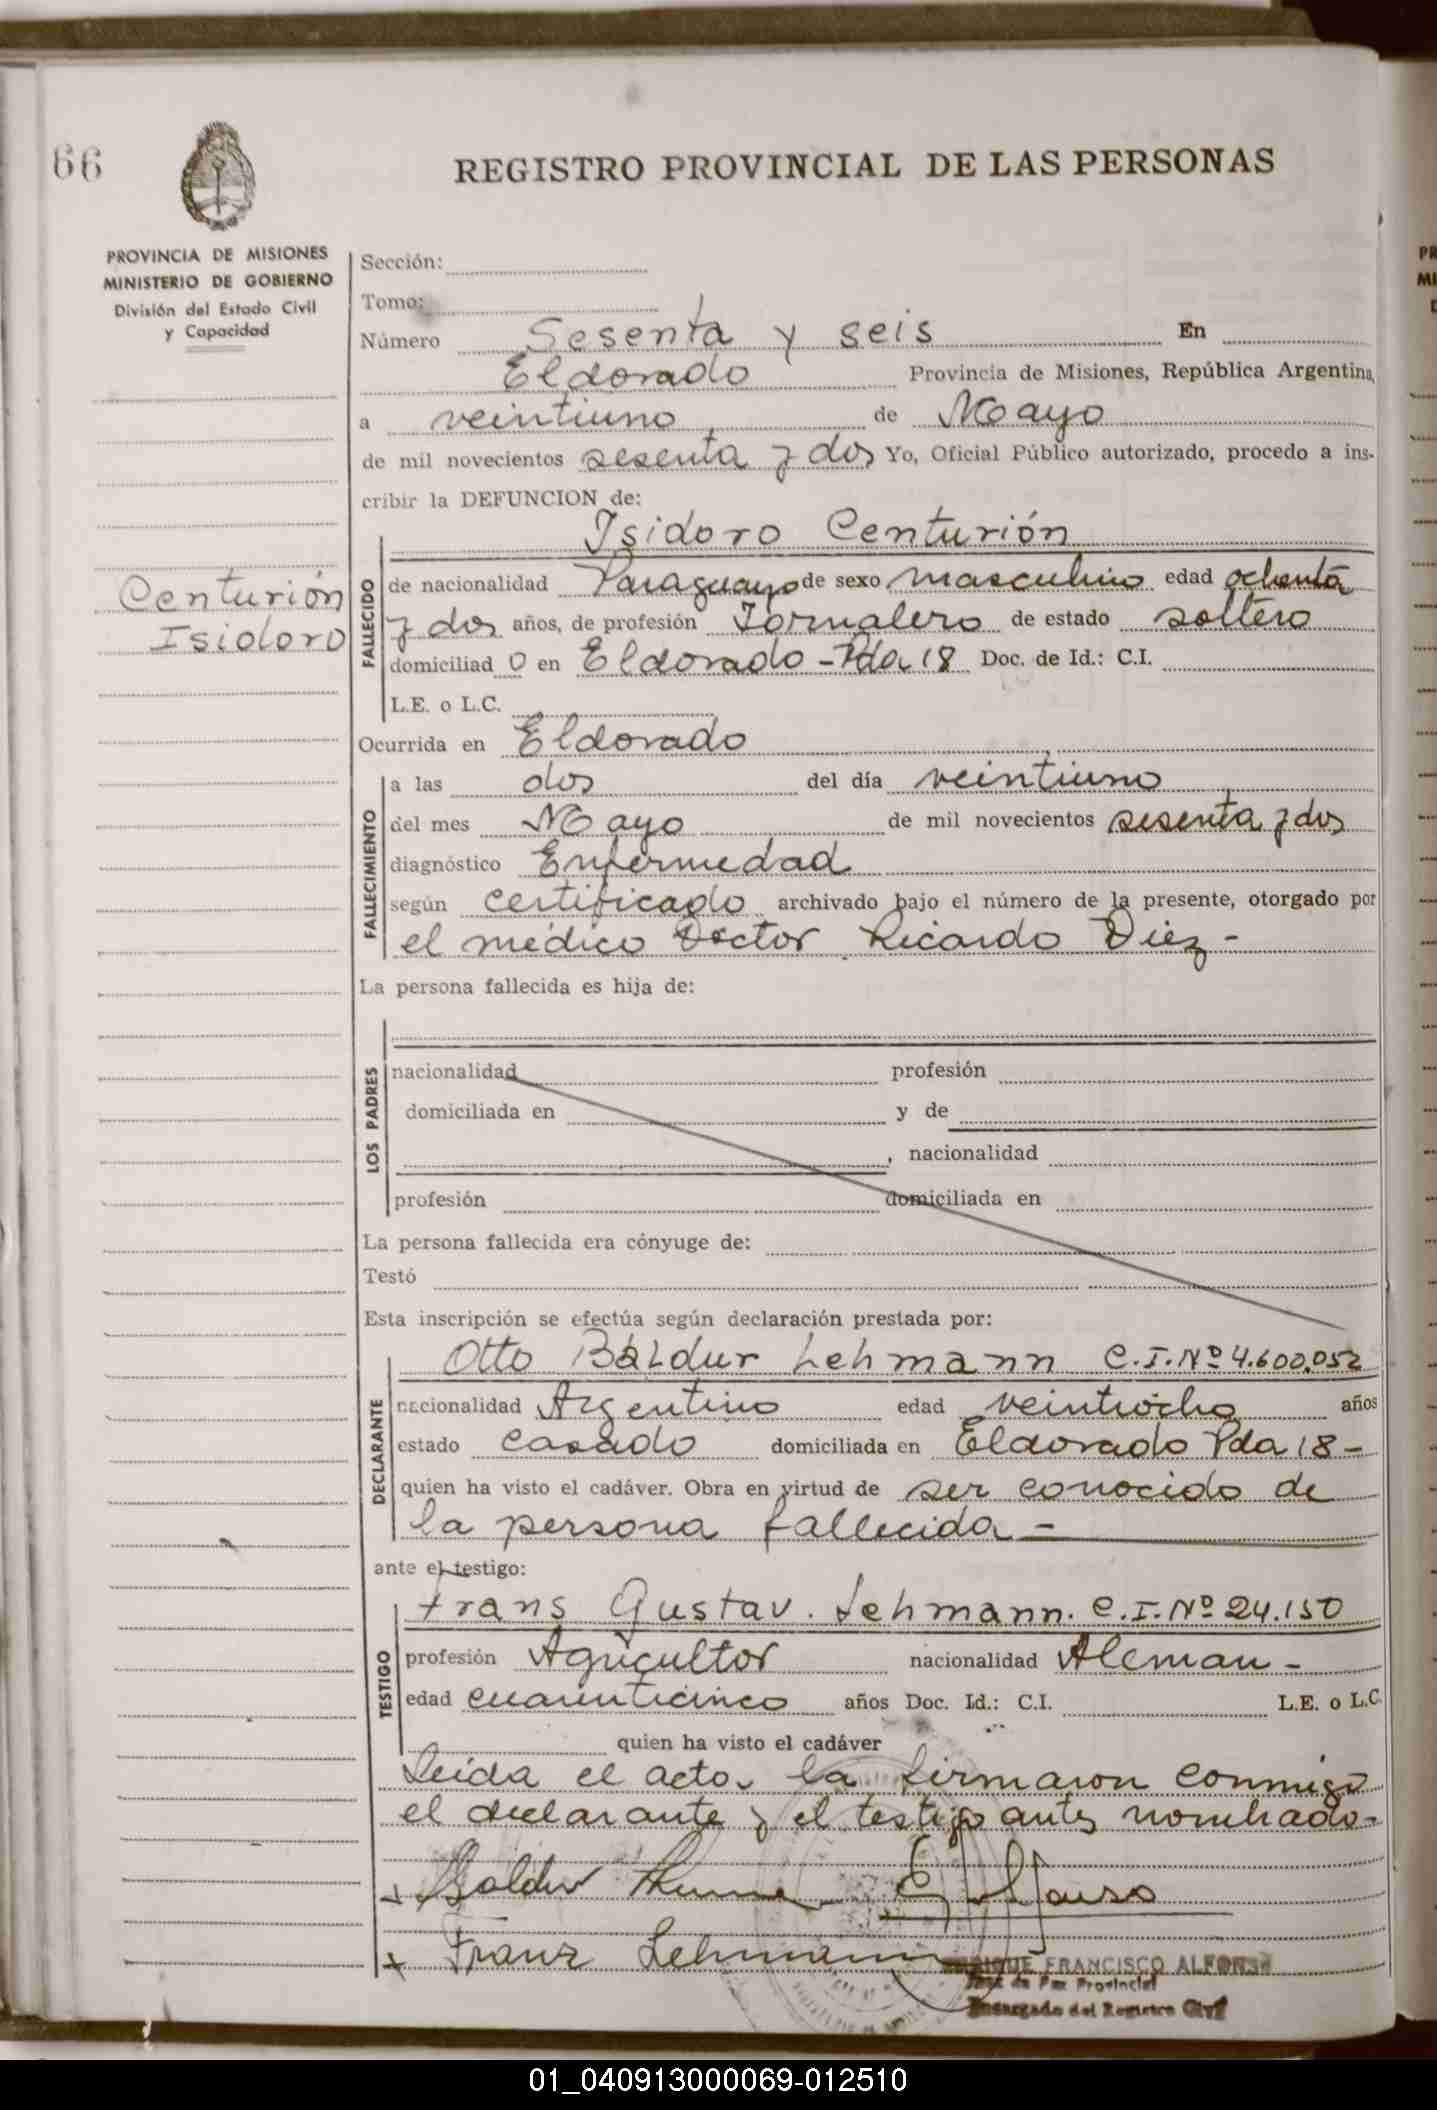 66
REGISTRO PROVINCIAL DE LAS PERSONAS
PROVINCIA DE MISIONES
MINISTERIO DE GOBIERNO
División del Estado Civil
y Capacidad
Centurión
Isidoro
Sección:
Tomo:
Número Sesenta y seis En
Eldorado Provincia de Misiones, República Argentina,
a veintiuno de Mayo
de mil novecientos sesenta y dos Yo, Oficial Público autorizado, procedo a ins-
cribir la DEFUNCION de:
Isidoro Centurión
FALLECIDO
de nacionalidad Paraguayo de sexo masculino edad ochenta
y dos años, de profesión Jornalero de estado soltero
domiciliad o en Eldorado - Pda 18 Doc. de Id.: C.I.
L.E. o L.C.
Ocurrida en Eldorado
FALLECIMIENTO
a las dos del día veintiuno
del mes Mayo de mil novecientos sesenta y dos
diagnóstico Enfermedad
según certificado archivado bajo el número de la presente, otorgado por
el médico Doctor Ricardo Diez -
La persona fallecida es hija de:
LOS PADRES
nacionalidad profesión
domiciliada en y de
, nacionalidad
profesión domiciliada en
La persona fallecida era cónyuge de:
Testó
Esta inscripción se efectúa según declaración prestada por:
DECLARANTE
Otto Báldur Lehmann C.I. Nº 4.600.052
nacionalidad Argentino edad veintiocho años
estado casado domiciliada en Eldorado Pda 18 -
quien ha visto el cadáver. Obra en virtud de ser conocido de
la persona fallecida -
ante el testigo:
TESTIGO
Frans Gustav. Lehmann. C.I. Nº 24.150
profesión Agricultor nacionalidad Aleman -
edad cuarenticinco años Doc. Id.: C.I. L.E. o L.C.
quien ha visto el cadáver
Leída el acto, la firmaron conmigo
el declarante y el testigo antes nombrado.
x Baldur
x Franz Lehmann
FRANCISCO ALFONSO
Juez de Paz Provincial
Encargado del Registro Civil
01_040913000069-012510